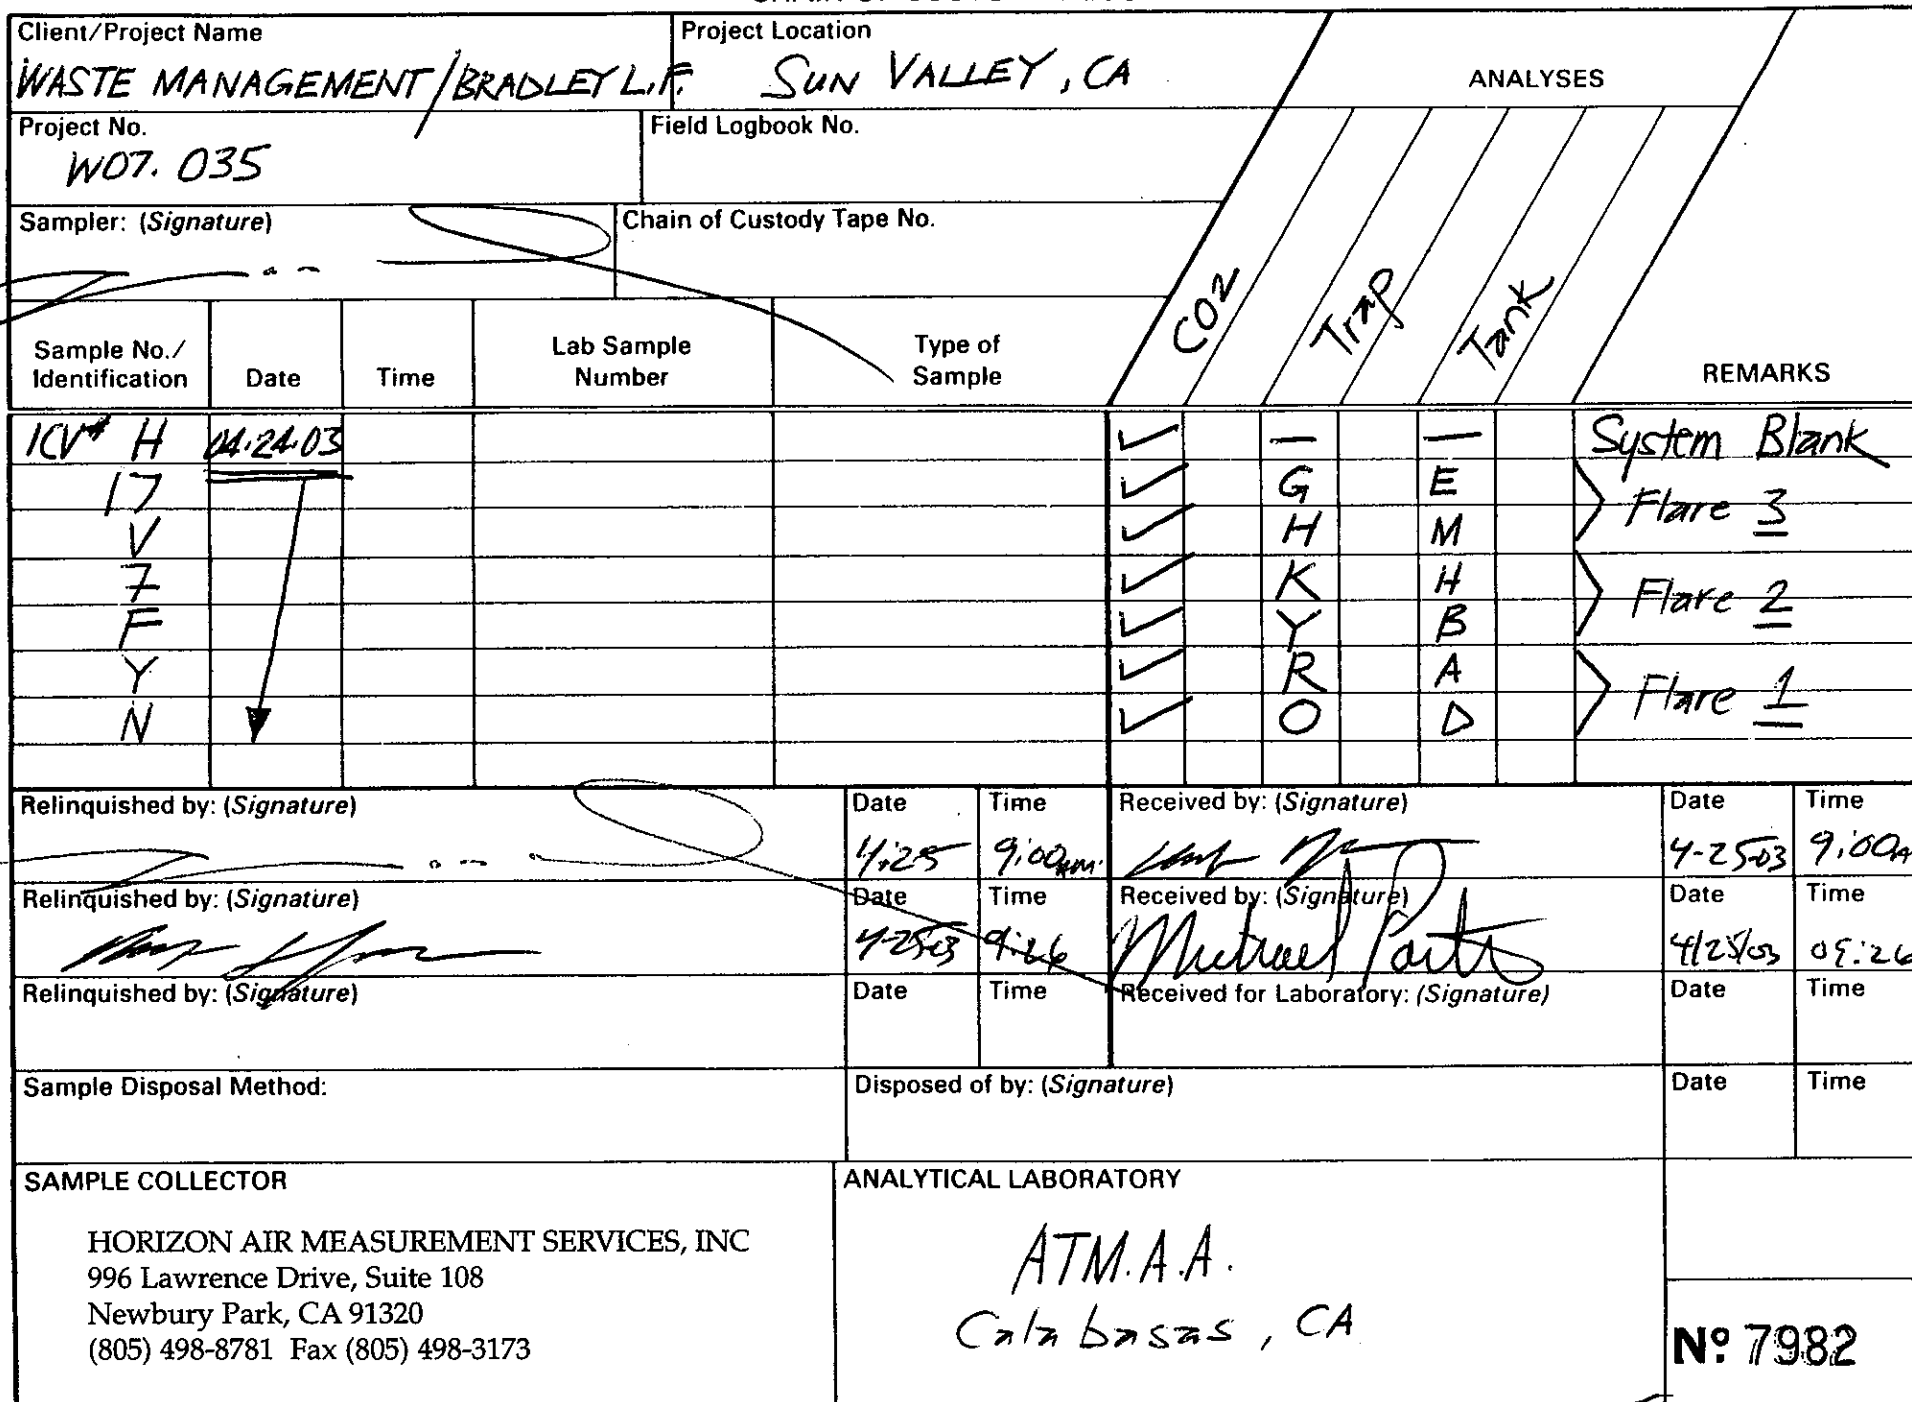 Client/Project Name
WASTE MANAGEMENT/BRADLEY L.F.
Project Location
SUN VALLEY, CA
ANALYSES
Project No.
W07.035
Field Logbook No.
Sampler: (Signature)
Chain of Custody Tape No.
Sample No./ Identification Date Time Lab Sample Number Type of Sample CO2 Trap Tank REMARKS
ICV# H 04.24.03 ✓ — — System Blank
17 ✓ G E
Flare 3
V ✓ H M
7 ✓ K H
Flare 2
F ✓ Y B
Y ✓ R A
Flare 1
N ✓ O D
Relinquished by: (Signature) Date Time Received by: (Signature) Date Time
4.25 9:00AM 4-25-03 9:00A
Relinquished by: (Signature) Date Time Received by: (Signature) Date Time
4-25-03 9:26 Michael 4/25/03 09:26
Relinquished by: (Signature) Date Time Received for Laboratory: (Signature) Date Time
Sample Disposal Method: Disposed of by: (Signature) Date Time
SAMPLE COLLECTOR
HORIZON AIR MEASUREMENT SERVICES, INC
996 Lawrence Drive, Suite 108
Newbury Park, CA 91320
(805) 498-8781 Fax (805) 498-3173
ANALYTICAL LABORATORY
ATM.A.A.
Calabasas, CA
Nº 7982